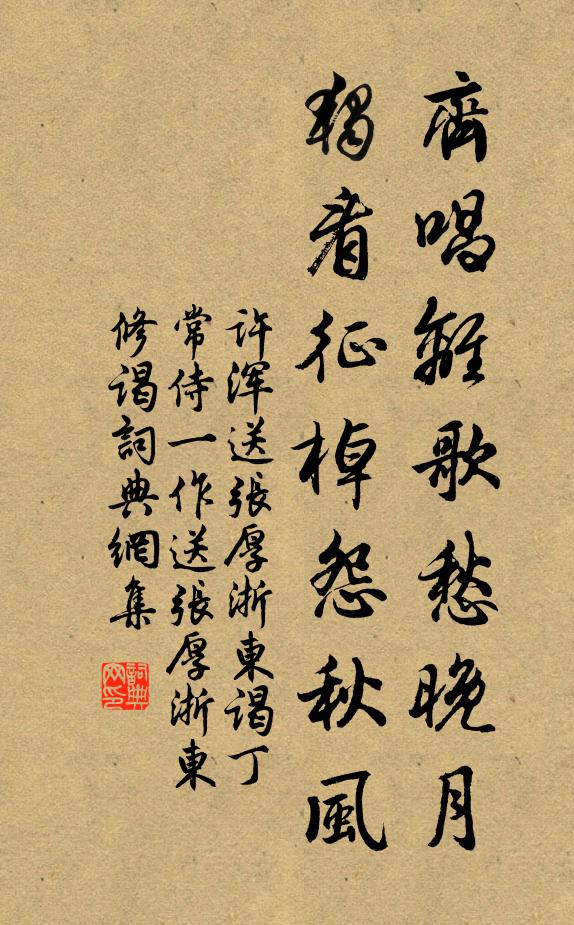 齊唱離歌愁晚月
獨看征棹怨秋風
許渾送張厚浙東謁丁
常侍一作送張厚浙東
修謁詞典網集
詞典網印